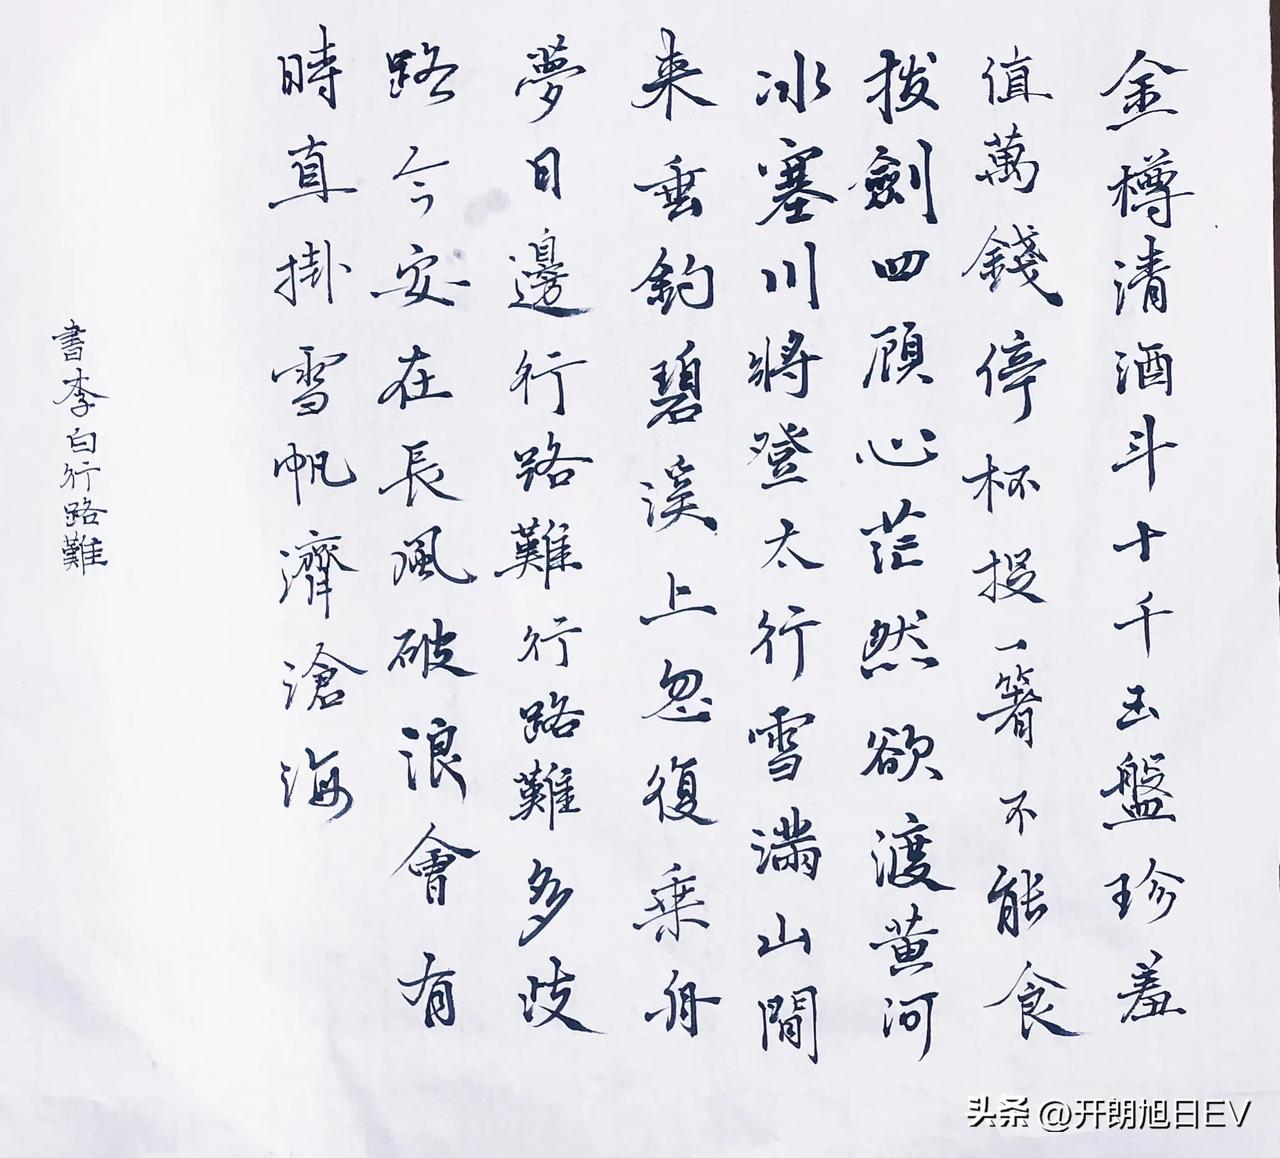 金樽清酒斗十千玉盤珍羞
值萬錢停杯投一箸不能食
拔劍四顧心茫然欲渡黄河
冰塞川將登太行雪滿山閒
来垂釣碧溪上忽復乘舟
夢日邊行路難行路難多歧
路今安在長風破浪會有
時直掛雲帆濟滄海
書李白行路難
头条 @开朗旭日EV